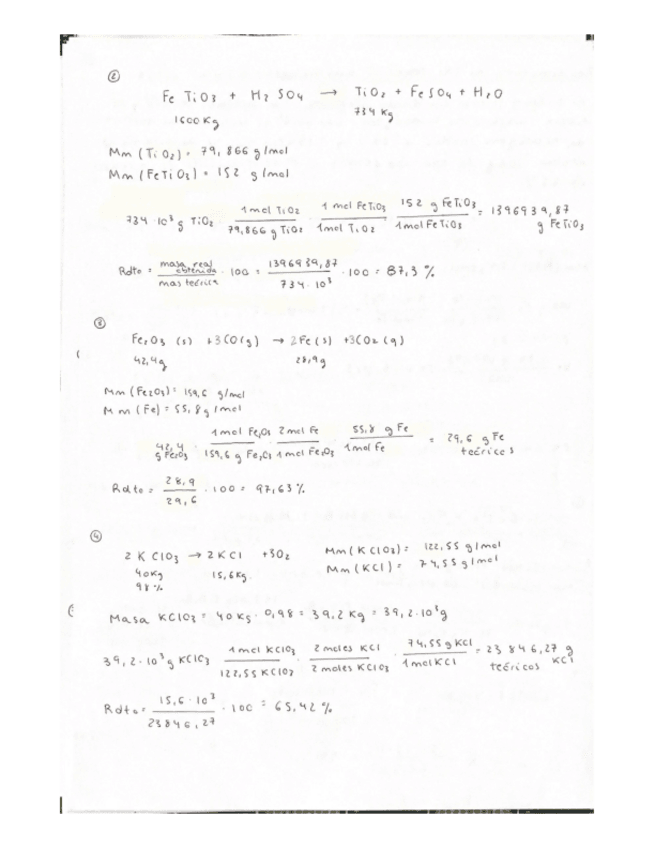 ②
Fe TiO3 + H2 SO4 → TiO2 + FeSO4 + H2O
1600Kg 734 Kg
Mm (TiO2) = 79,866 g/mol
Mm (FeTiO3) = 152 g/mol
734·10³ g TiO2 · 1 mol TiO2 / 79,866 g TiO2 · 1 mol FeTiO3 / 1 mol TiO2 · 152 g FeTiO3 / 1 mol FeTiO3 = 1396939,87 g FeTiO3
Rdto = masa real obtenida / mas teórica · 100 = 1396939,87 / 734·10³ · 100 = 87,3 %
③
Fe2O3 (s) + 3CO(g) → 2Fe(s) + 3CO2(g)
42,4g 28,9g
Mm (Fe2O3) = 159,6 g/mol
Mm (Fe) = 55,8 g/mol
42,4 g Fe2O3 · 1 mol Fe2O3 / 159,6 g Fe2O3 · 2 mol Fe / 1 mol Fe2O3 · 55,8 g Fe / 1 mol Fe = 29,6 g Fe teóricos
Rdto = 28,9 / 29,6 · 100 = 97,63 %
④
2 K ClO3 → 2 KCl + 3O2 Mm (K ClO3) = 122,55 g/mol
40Kg 15,6Kg. Mm (KCl) = 74,55 g/mol
98 %
Masa KClO3 = 40 Kg · 0,98 = 39,2 Kg = 39,2·10³ g
39,2·10³ g KClO3 · 1 mol KClO3 / 122,55 KClO3 · 2 moles KCl / 2 moles KClO3 · 74,55 g KCl / 1 mol KCl = 23 846,27 g KCl teóricos
Rdto = 15,6·10³ / 23846,27 · 100 = 65,42 %